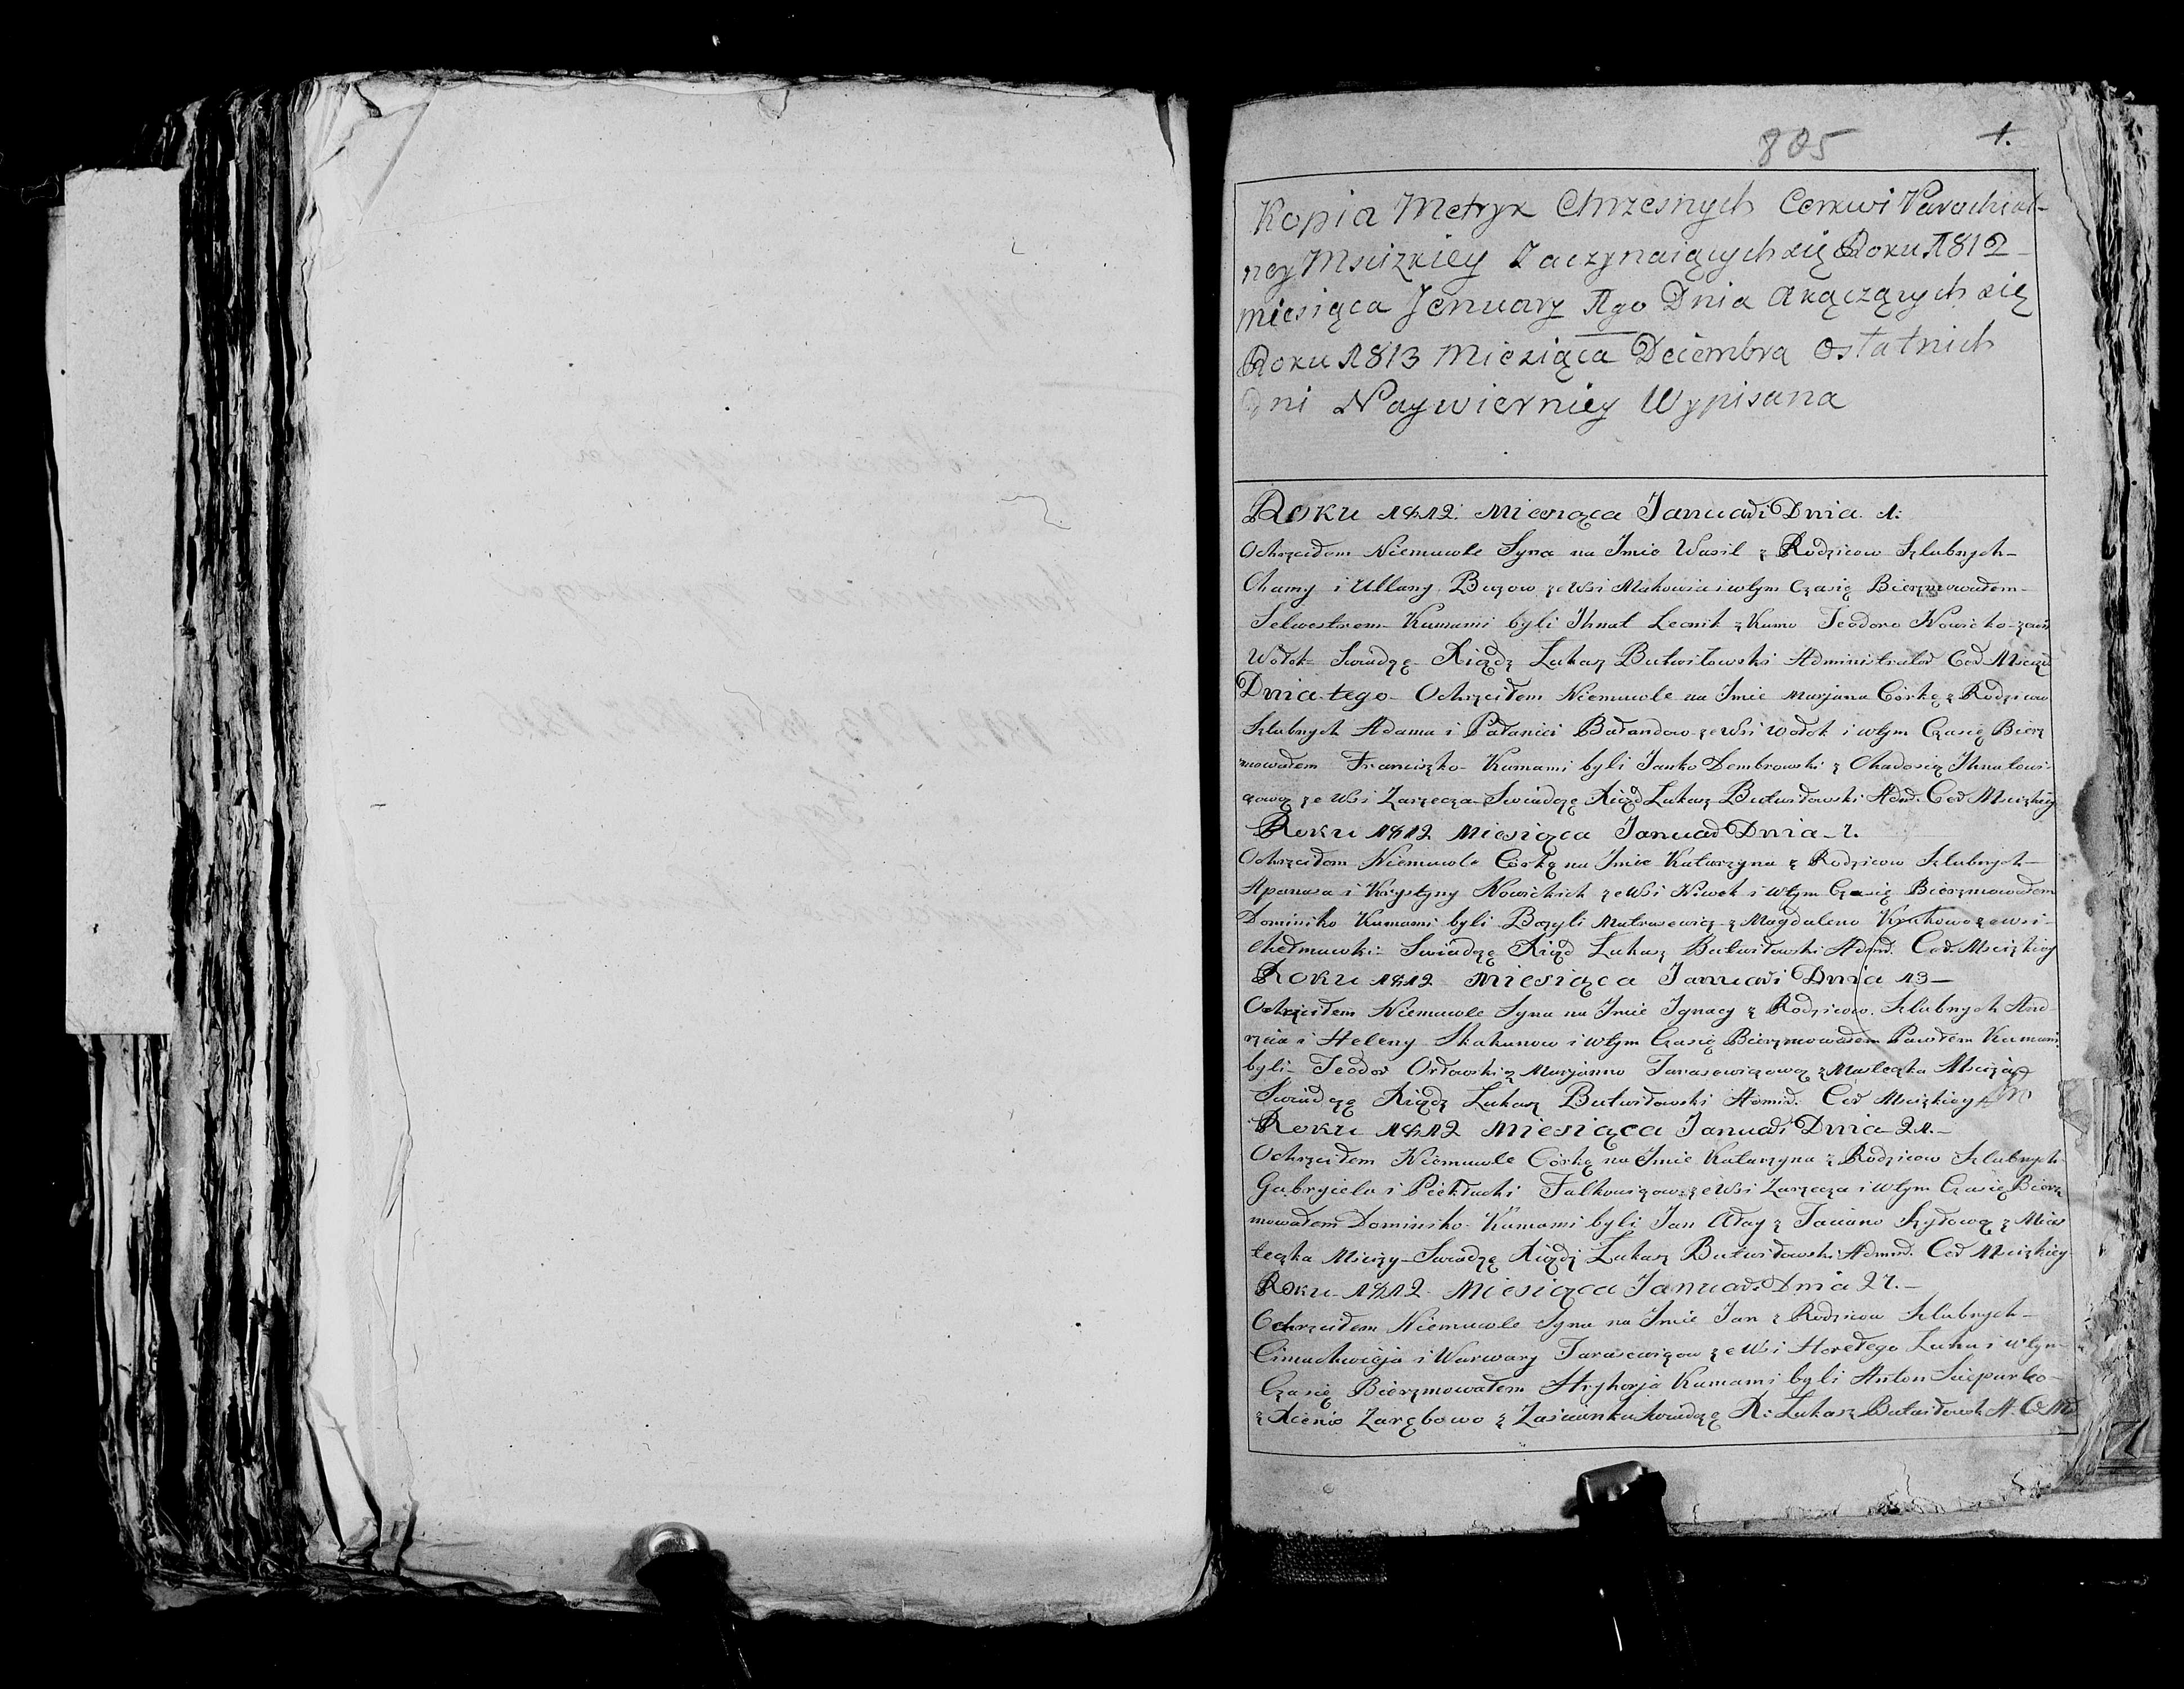 805 1.
Kopia Metryk Chrzesnych Cerkwi Parochial-
ney Mscizkiey Zaczynaiących się Roku 1812
miesiąca Jenuary 1go Dnia Akączących się
Roku 1813 Miesiąca Decembra Ostatnich
Dni Naywierniey Wypisana
Roku 1812 Miesiąca Januari Dnia 1.
Ochrzciłem Niemuwle Syna na Jmie Wasil z Rodzicow Szlubnych
i Ullany ze Wsi i wtym Czasię Bierzmowałem
Selwestrem Kumami byli Jhnat Lecnik z Teodoro Nowicko
Wołok Swiadzę Xiądz Łukasz Butwiłowski Administrator Cer
Dnia tego Ochrzciłem Niemuwle na Jmie Marjana Córkę z Rodzicow
Szlubnych Adama i Pałanici Bałandow ze Wsi Wołok i wtym Czasię Bierz
mowałem Franciszko Kumami byli Janko Dembrowski z Jhnatowi
czową ze Wsi Zarzecza Swiadczę Xiądz Łukasz Butwiłowski Adm. Cer Msciżkiey
Roku 1812 Miesiąca Januar Dnia 7.
Ochrzciłem Niemuwle Córkę na Jmie Katarzyna z Rodzicow Szlubnych
Apanasa i Krystyny Nowickich ze Wsi Niwek i wtym Czasię Bierzmowałem
Dominiko Kumami byli Bazyli Matrasewicz z Magdaleno ze wsi
Swiadzę Xiądz Łukasz Butwiłowski Admi. Cer. Msciżkiey
Roku 1812 Miesiąca Januari Dnia 13
Ochrzciłem Niemuwle Syna na Jmie Jgnacy z Rodzicow Szlubnych And
rzeia i Heleny Skakunow i wtym Czasię Bierzmowałem Pawłem Kumami
byli Teodor Orłowski z Marjanno Tarasewiczową z Miasteczka
Swiadczę Xiądz Łukasz Butwiłowski Admi. Cer Msciżkiey
Roku 1812 Miesiąca Januari Dnia 21.
Ochrzciłem Niemuwle Córkę na Jmie Katarzyna z Rodzicow Szlubnych
Gabryiela i Falkowiczow ze Wsi Zarzecza i wtym Czasię Bierz
mowałem Dominiko Kumami byli Jan z Taciano Szyłową z Mias
teczka Mscizy Swiadzę Xiądz Łukasz Butwiłowski Admi. Cer Msciżkiey
Roku 1812 Miesiąca Januari Dnia 27.
Ochrzciłem Niemuwle Syna na Jmie Jan z Rodzicow Szlubnych
i Warwary Tarasewiczow ze Wsi Horełego Luha i wtym
Czasię Bierzmowałem Hryhorja Kumami byli Anton
z Xienio Zarębowo z Zascianku Swiadczę X. Łukasz Butwiłowski A. C. M.